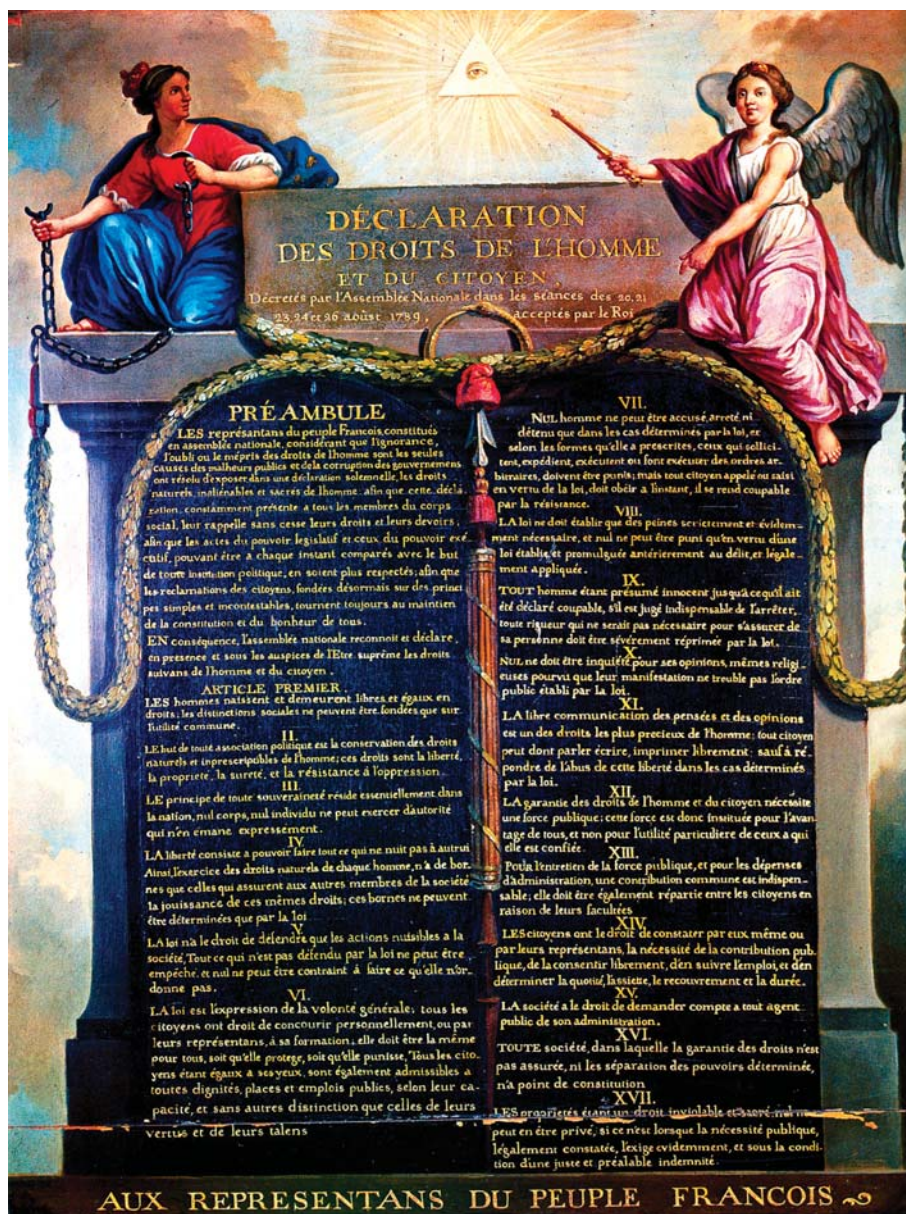 DÉCLARATION
DES DROITS DE L'HOMME
ET DU CITOYEN,
Décretés par l'Assemblée Nationale dans les séances des 20, 21
23, 24 et 26 aoûst 1789, acceptés par le Roi
PRÉAMBULE
LES représantans du peuple Francois, constitués
en assemblée nationale, considérant que l'ignorance,
l'oubli ou le mépris des droits de l'homme sont les seules
causes des malheurs publics et de la corruption des gouvernemens
ont résolu d'exposer dans une déclaration solemnelle, les droits
naturels, inaliénables et sacrés de l'homme: afin que cette décla-
ration, constamment présente a tous les membres du corps
social, leur rappelle sans cesse leurs droits et leurs devoirs;
afin que les actes du pouvoir legislatif et ceux du pouvoir exé-
cutif, pouvant être a chaque instant comparés avec le but
de toute institution politique, en soient plus respectés; afin que
les reclamations des citoyens, fondées désormais sur des princi-
pes simples et incontestables, tournent toujours au maintien
de la constitution et du bonheur de tous.
EN conséquence, l'assemblée nationale reconnoit et déclare,
en presence et sous les auspices de l'Etre suprême les droits
suivans de l'homme et du citoyen.
ARTICLE PREMIER.
LES hommes naissent et demeurent libres et égaux en
droits; les distinctions sociales ne peuvent être fondées que sur
l'utilité commune.
II.
LE but de toute association politique est la conservation des droits
naturels et inprescriptibles de l'homme; ces droits sont la liberté,
la propriété, la sureté, et la résistance à l'oppression.
III.
LE principe de toute souveraineté réside essentiellement dans
la nation, nul corps, nul individu ne peut exercer d'autorité
qui n'en émane expressement.
IV.
LA liberté consiste a pouvoir faire tout ce qui ne nuit pas à autrui
Ainsi, l'exercice des droits naturels de chaque homme, n'a de bor-
nes que celles qui assurent aux autres membres de la société
la jouissance de ces mêmes droits; ces bornes ne peuvent
être déterminées que par la loi
V.
LA loi n'a le droit de défendre que les actions nuisibles a la
société, Tout ce qui n'est pas défendu par la loi ne peut être
empêché, et nul ne peut être contraint à faire ce qu'elle n'or-
donne pas.
VI.
LA loi est l'expression de la volonté générale; tous les
citoyens ont droit de concourir personnellement, ou par
leurs représentans, à sa formation; elle doit être la même
pour tous, soit qu'elle protege, soit qu'elle punisse, Tous les cito-
yens étant égaux a ses yeux, sont également admissibles a
toutes dignités, places et emplois publics, selon leur ca-
pacité, et sans autres distinction que celles de leurs
vertus et de leurs talens
VII.
NUL homme ne peut être accusé, arreté, ni
détenu que dans les cas déterminés par la loi, et
selon les formes qu'elle a prescrites, ceux qui sollici-
tent, expédient, exécutent ou font exécuter des ordres ar-
bitraires, doivent être punis; mais tout citoyen appelé ou saisi
en vertu de la loi, doit obéir a l'instant, il se rend coupable
par la résistance.
VIII.
LA loi ne doit établir que des peines strictement et évidem-
ment nécessaire, et nul ne peut être puni qu'en vertu d'une
loi établie et promulguée antérierement au délit, et légale-
ment appliquée.
IX.
TOUT homme étant présumé innocent jusqu'a ce qu'il ait
été déclaré coupable, s'il est jugé indispensable de l'arrêter,
toute rigueur qui ne serait pas nécessaire pour s'assurer de
sa personne doit être sévèrement réprimée par la loi.
X.
NUL ne doit être inquiété pour ses opinions, mêmes religi-
euses pourvu que leur manifestation ne trouble pas l'ordre
public établi par la loi.
XI.
LA libre communication des pensées et des opinions
est un des droits les plus precieux de l'homme; tout citoyen
peut dont parler écrire, imprimer librement; sauf à ré-
pondre de l'abus de cette liberté dans les cas déterminés
par la loi.
XII.
LA garantie des droits de l'homme et du citoyen nécessite
une force publique; cette force est donc instituée pour l'avan-
tage de tous, et non pour l'utilité particuliere de ceux a qui
elle est confiée.
XIII.
POUR l'entretien de la force publique, et pour les dépenses
d'administration, une contribution commune est indispen-
sable; elle doit être également répartie entre les citoyens en
raison de leurs facultées
XIV.
LES citoyens ont le droit de constater par eux même ou
par leurs représentans, la nécessité de la contribution pub-
lique, de la consentir librement, d'en suivre l'emploi, et d'en
déterminer la quotité, l'assiette, le recouvrement et la durée.
XV.
LA société a le droit de demander compte a tout agent
public de son administration.
XVI.
TOUTE société, dans laquelle la garantie des droits n'est
pas assurée, ni les séparation des pouvoirs déterminée,
n'a point de constitution
XVII.
LES propriétés étant un droit inviolable et sacré, nul ne
peut en être privé, si ce n'est lorsque la nécessité publique,
légalement constatée, l'exige evidemment, et sous la condi-
tion d'une juste et préalable indemnité.
AUX REPRESENTANS DU PEUPLE FRANCOIS